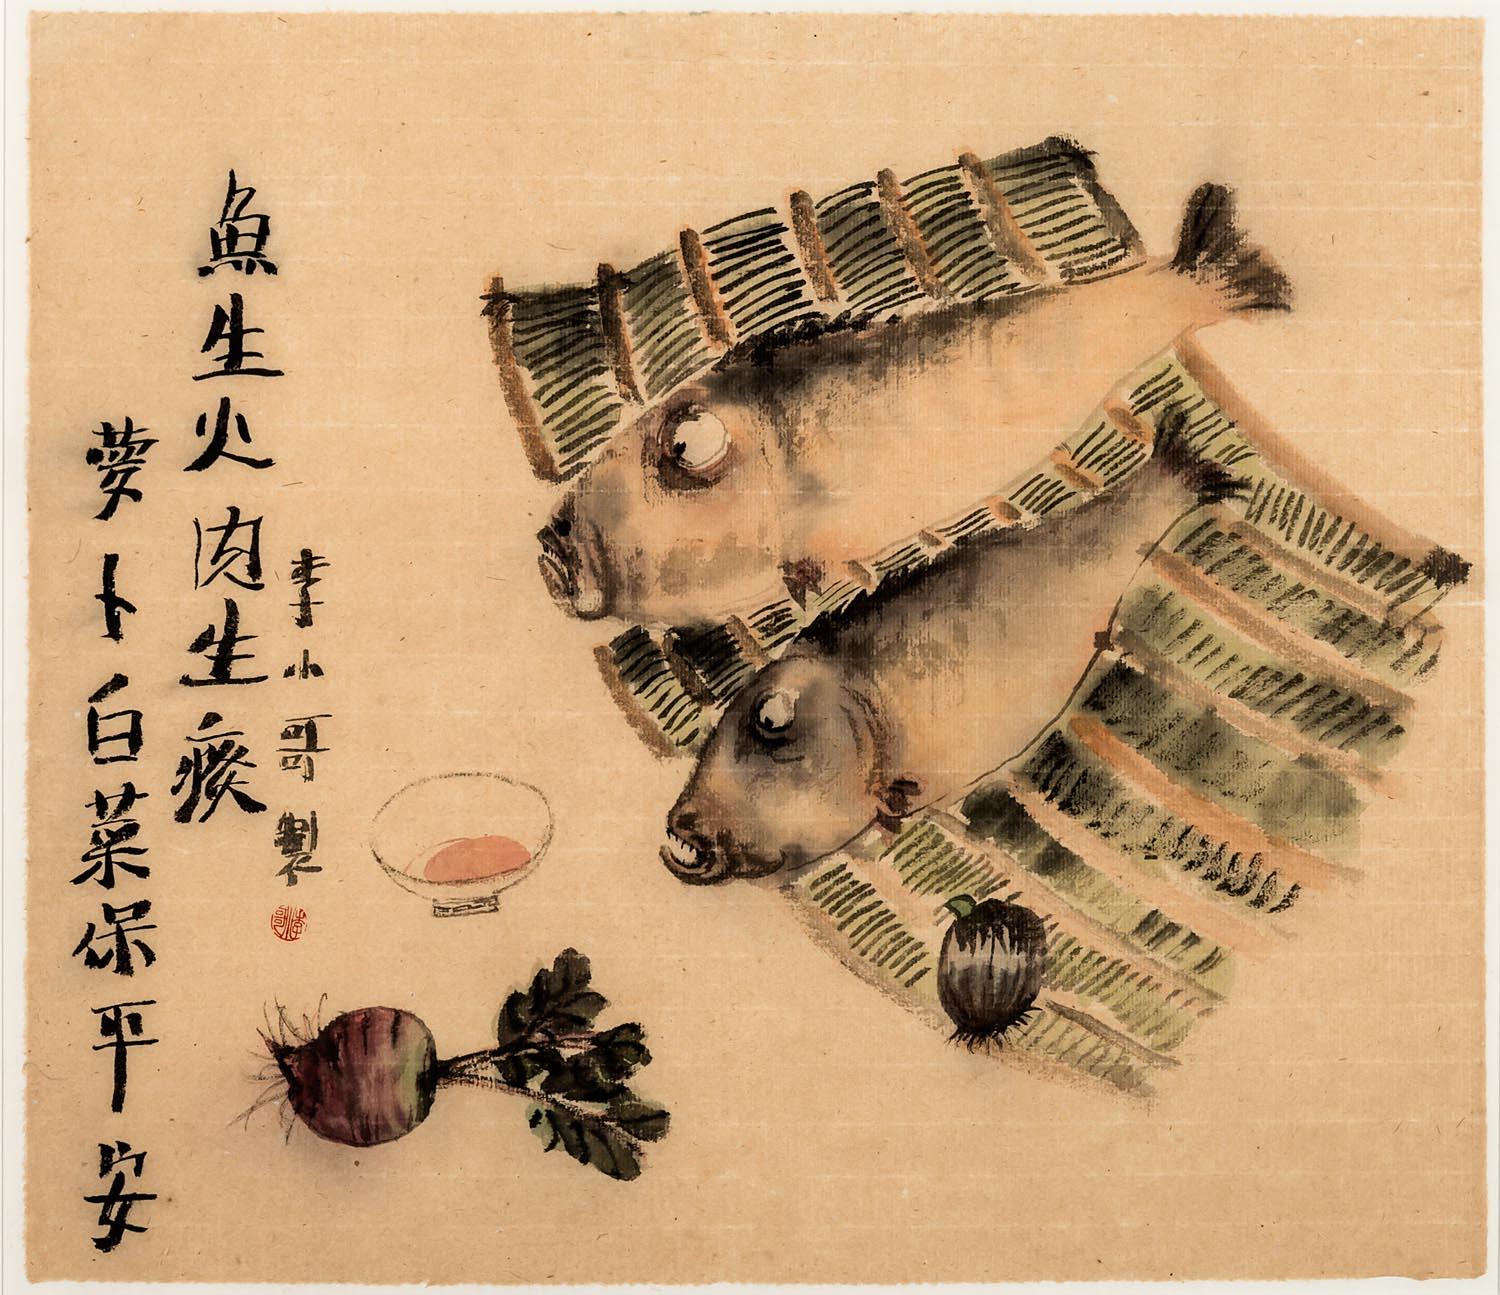 魚生火肉生痰
萝卜白菜保平安
李小哥製